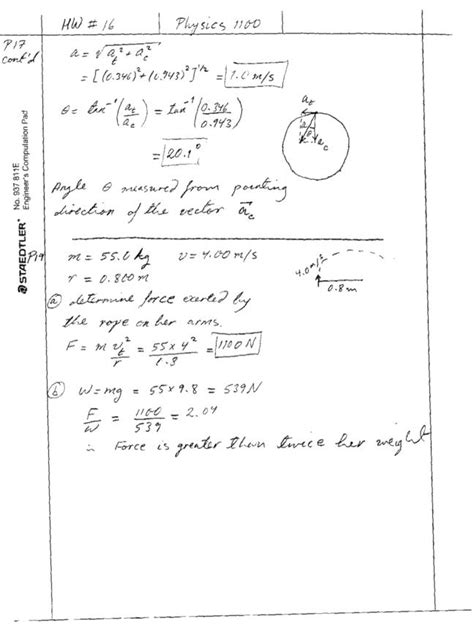 HW # 16 Physics 1100
P17
cont'd
a = √(a_t² + a_c²)
= [(0.346)² + (0.943)²]^1/2 = 1.0 m/s
θ = tan⁻¹(a_t/a_c) = tan⁻¹(0.346/0.943)
= 20.1°
a_t
a
θ
a_c
Angle θ measured from pointing
direction of the vector a⃗_c
STAEDTLER
No. 937 811E
Engineer's Computation Pad
P19
m = 55.0 kg v = 4.00 m/s
r = 0.800 m
4.0 m/s
0.8 m
(a) determine force exerted by
the rope on her arms.
F = m v_t²/r = 55 x 4²/1.3 = 1100 N
(b) W = mg = 55 x 9.8 = 539 N
F/W = 1100/539 = 2.04
∴ Force is greater than twice her weight